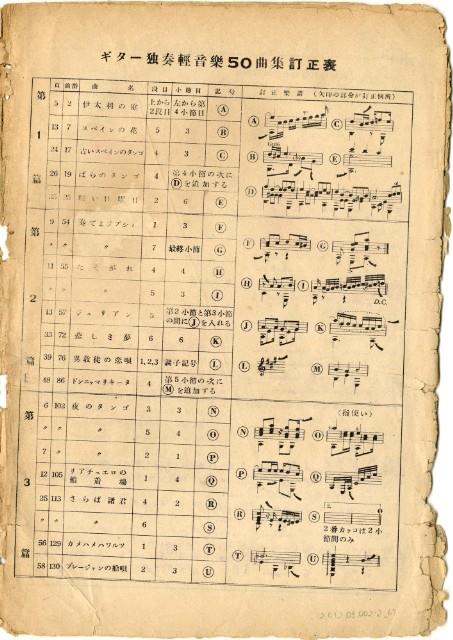 ギター独奏輕音樂50曲集訂正表
頁 曲番 曲 名 段目 小節目 記号 訂正樂譜 (矢印の部分が訂正個所)
第1篇
5 2 伊太利の庭 上から2段目 左から第4小節目 Ⓐ
13 7 スペインの花 5 3 Ⓑ
24 17 古いスペインのタンゴ 4 3 Ⓒ
26 19 ばらのタンゴ 4 第4小節の次にⒹを追加する
日曜日 2 6 Ⓔ
第2篇
9 54 奏でよジプシィ 1 3 Ⓕ
〃 〃 〃 7 最終小節 Ⓖ
11 55 たそがれ 4 4 Ⓗ
〃 〃 〃 5 3 Ⓘ
13 57 ジュリアン 5 第2小節と第3小節の間にⒿを入れる
33 72 悲しき夢 6 6 Ⓚ
39 76 異教徒の恋唄 1,2,3 調子記号 Ⓛ
48 86 ドンニャマリキータ 4 第5小節の次にⓂを追加する
第3篇
6 103 夜のタンゴ 3 3 Ⓝ
〃 〃 〃 5 4 Ⓞ
7 〃 〃 2 1 Ⓟ
12 105 リアチュエロの船着場 1 4 Ⓠ
25 113 さらば諸君 4 2 Ⓡ
〃 〃 〃 6 Ⓢ
56 129 カメハメハワルツ 1 3 Ⓣ
58 130 プレージャンの船唄 2 3 Ⓤ
Ⓐ Ⓒ
Ⓑ Ⓔ
Ⓓ
Ⓕ Ⓖ
Ⓗ Ⓘ
D.C.
Ⓙ Ⓚ
Ⓛ Ⓜ
(指使い)
Ⓝ Ⓞ
Ⓟ Ⓠ
Ⓡ Ⓢ
2番カッコは2小
節間のみ
Ⓣ Ⓤ